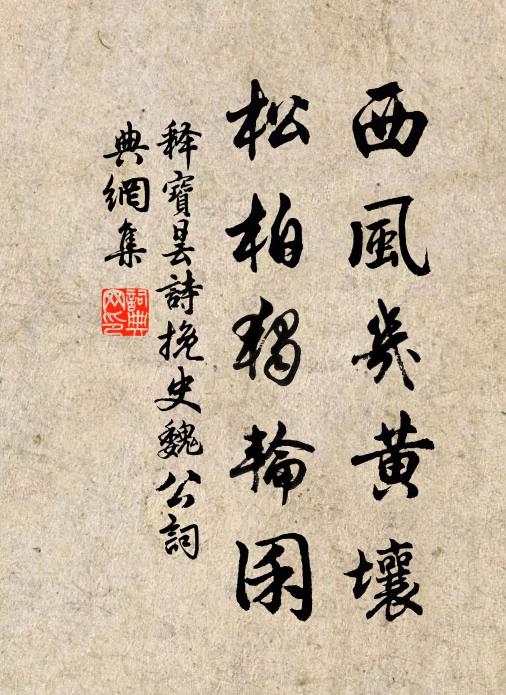 西風幾黃壤
松柏獨輪囷
釋寶曇詩挽史魏公詞
典網集
詞典網印